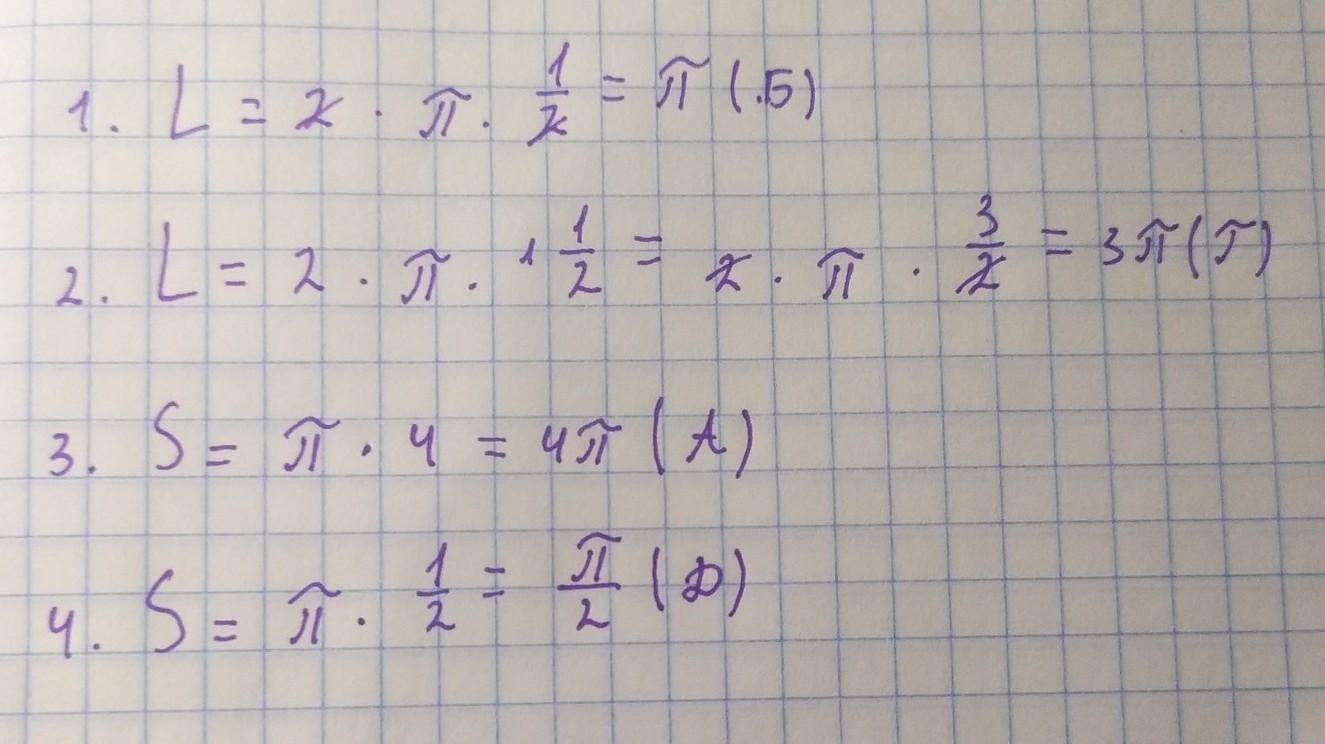 1. L = 2 · π · 1/2 = π (.Б)
2. L = 2 · π · 1 1/2 = 2 · π · 3/2 = 3π (Г)
3. S = π · 4 = 4π (А)
4. S = π · 1/2 = π/2 (Д)